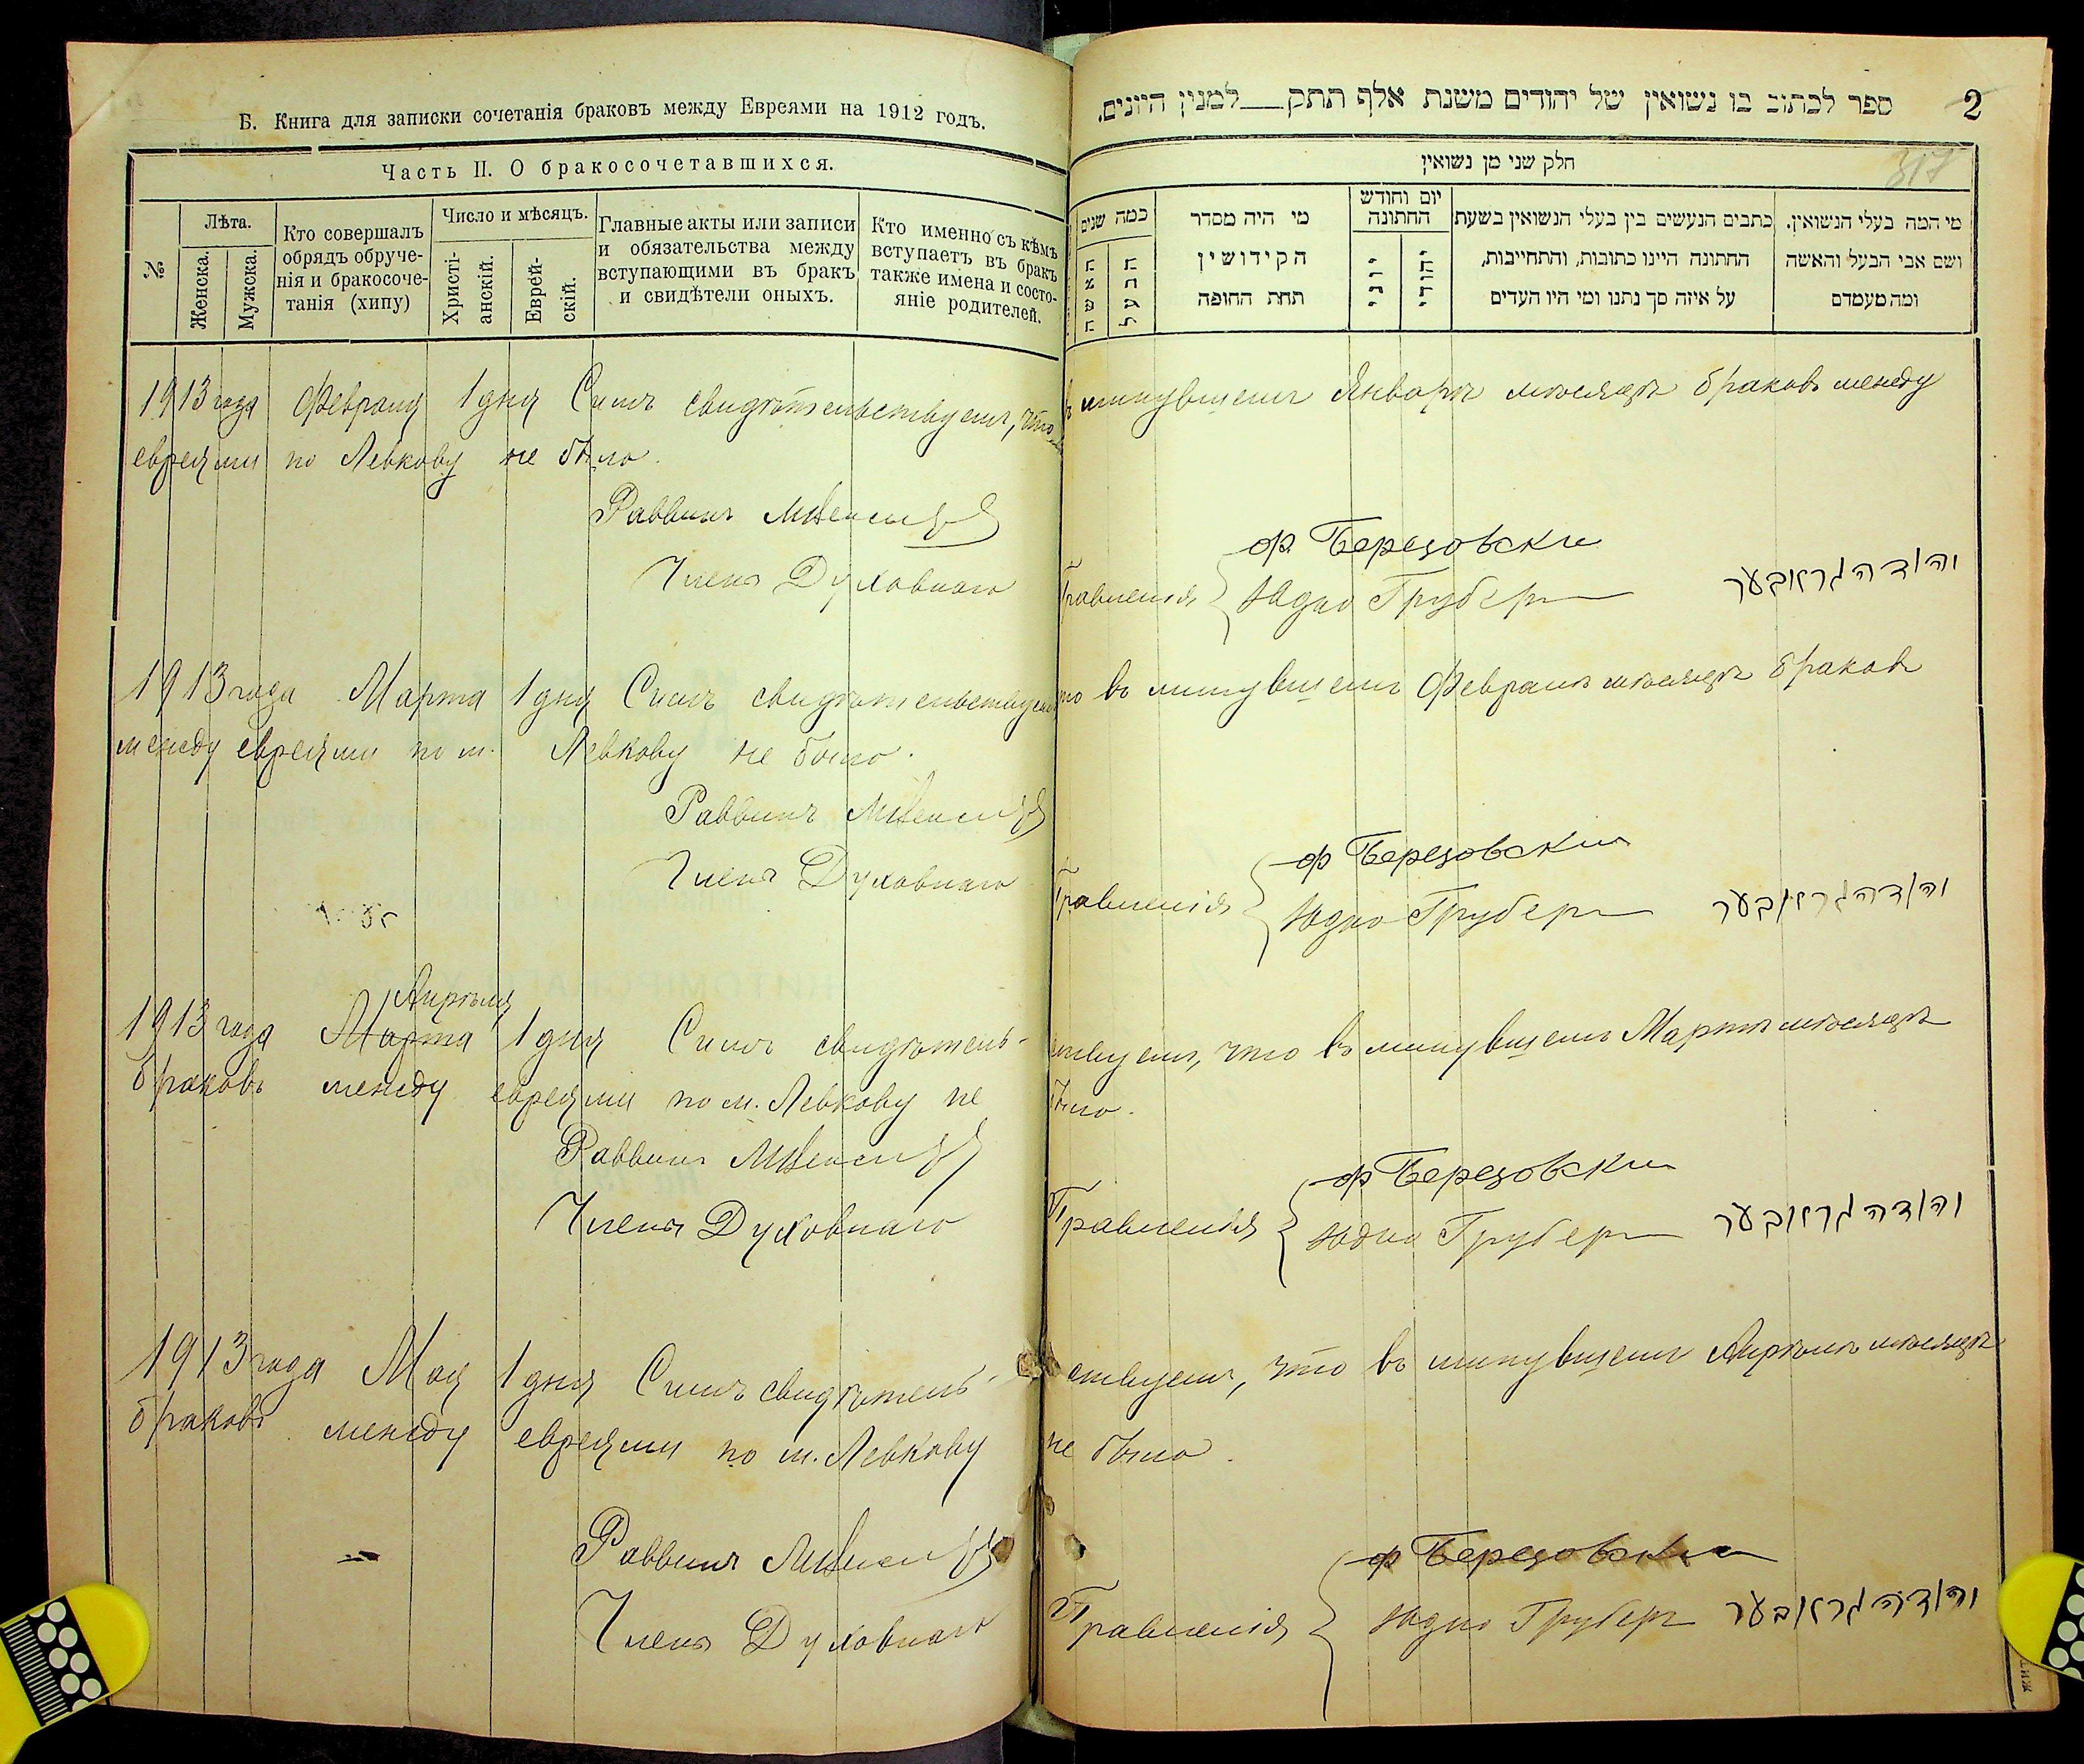 Б. Книга для записки сочетанія браковъ между Евреями на 1912 годъ.
Часть II. О бракосочетавшихся.
№
Лѣта.
Женска.
Мужска.
Кто совершалъ
обрядъ обруче-
нія и бракосоче-
танія (хипу)
Число и мѣсяцъ.
Христі-
анскій.
Еврей-
скій.
Главные акты или записи
и обязательства между
вступающими въ бракъ
и свидѣтели оныхъ.
Кто именно съ кѣмъ
вступаетъ въ бракъ
также имена и состо-
яніе родителей.
ספר לכתוב בו נשואין של יהודים משנת אלף תתק___למנין היונים.
2
317
חלק שני מן נשואין
מי המה בעלי הנשואין.
ושם אבי הבעל והאשה
ומה מעמדם
כתבים הנעשים בין בעלי הנשואין בשעת
החתונה היינו כתובות, והתחייבות,
על איזה סך נתנו ומי היו העדים
יום וחודש
החתונה
יהודי
יוני
מי היה מסדר
הקידושין
תחת החופה
כמה שנים
הבעל
האשה
1913 года Февраля 1 дня Симъ свидѣтельствуемъ, что въ минувшемъ Январѣ мѣсяцѣ браковъ между
евреями по Левкову не было.
Раввинъ
ф Березовски
Члены Духовнаго Правленія Юдко Груберъ והודה גראבער
1913 года Марта 1 дня Симъ свидѣтельствуемъ что въ минувшемъ Февралѣ мѣсяцѣ браковъ
между евреями по м. Левкову не было.
Раввинъ
ф Березовски
Члены Духовнаго Правленія Юдко Груберъ והודה גראבער
Апрѣля
1913 года Марта 1 дня Симъ свидѣтель- ствуемъ, что въ минувшемъ Мартѣ мѣсяцѣ
браковъ между евреями по м. Левкову не было.
Раввинъ
ф Березовски
Члены Духовнаго Правленія Юдко Груберъ והודה גראבער
1913 года Мая 1 дня Симъ свидѣтель- ствуемъ, что въ минувшемъ Апрѣлѣ мѣсяцѣ
браковъ между евреями по м. Левкову не было.
Раввинъ
ф Березовски
Члены Духовнаго Правленія Юдко Груберъ והודה גראבער